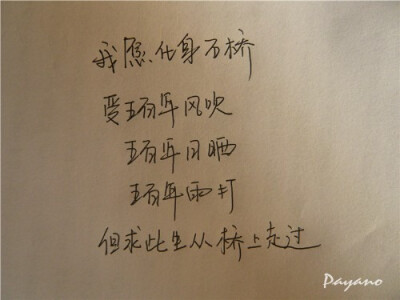 我愿化身石桥
受五百年风吹
五百年日晒
五百年雨打
但求此生从桥上走过
Payano